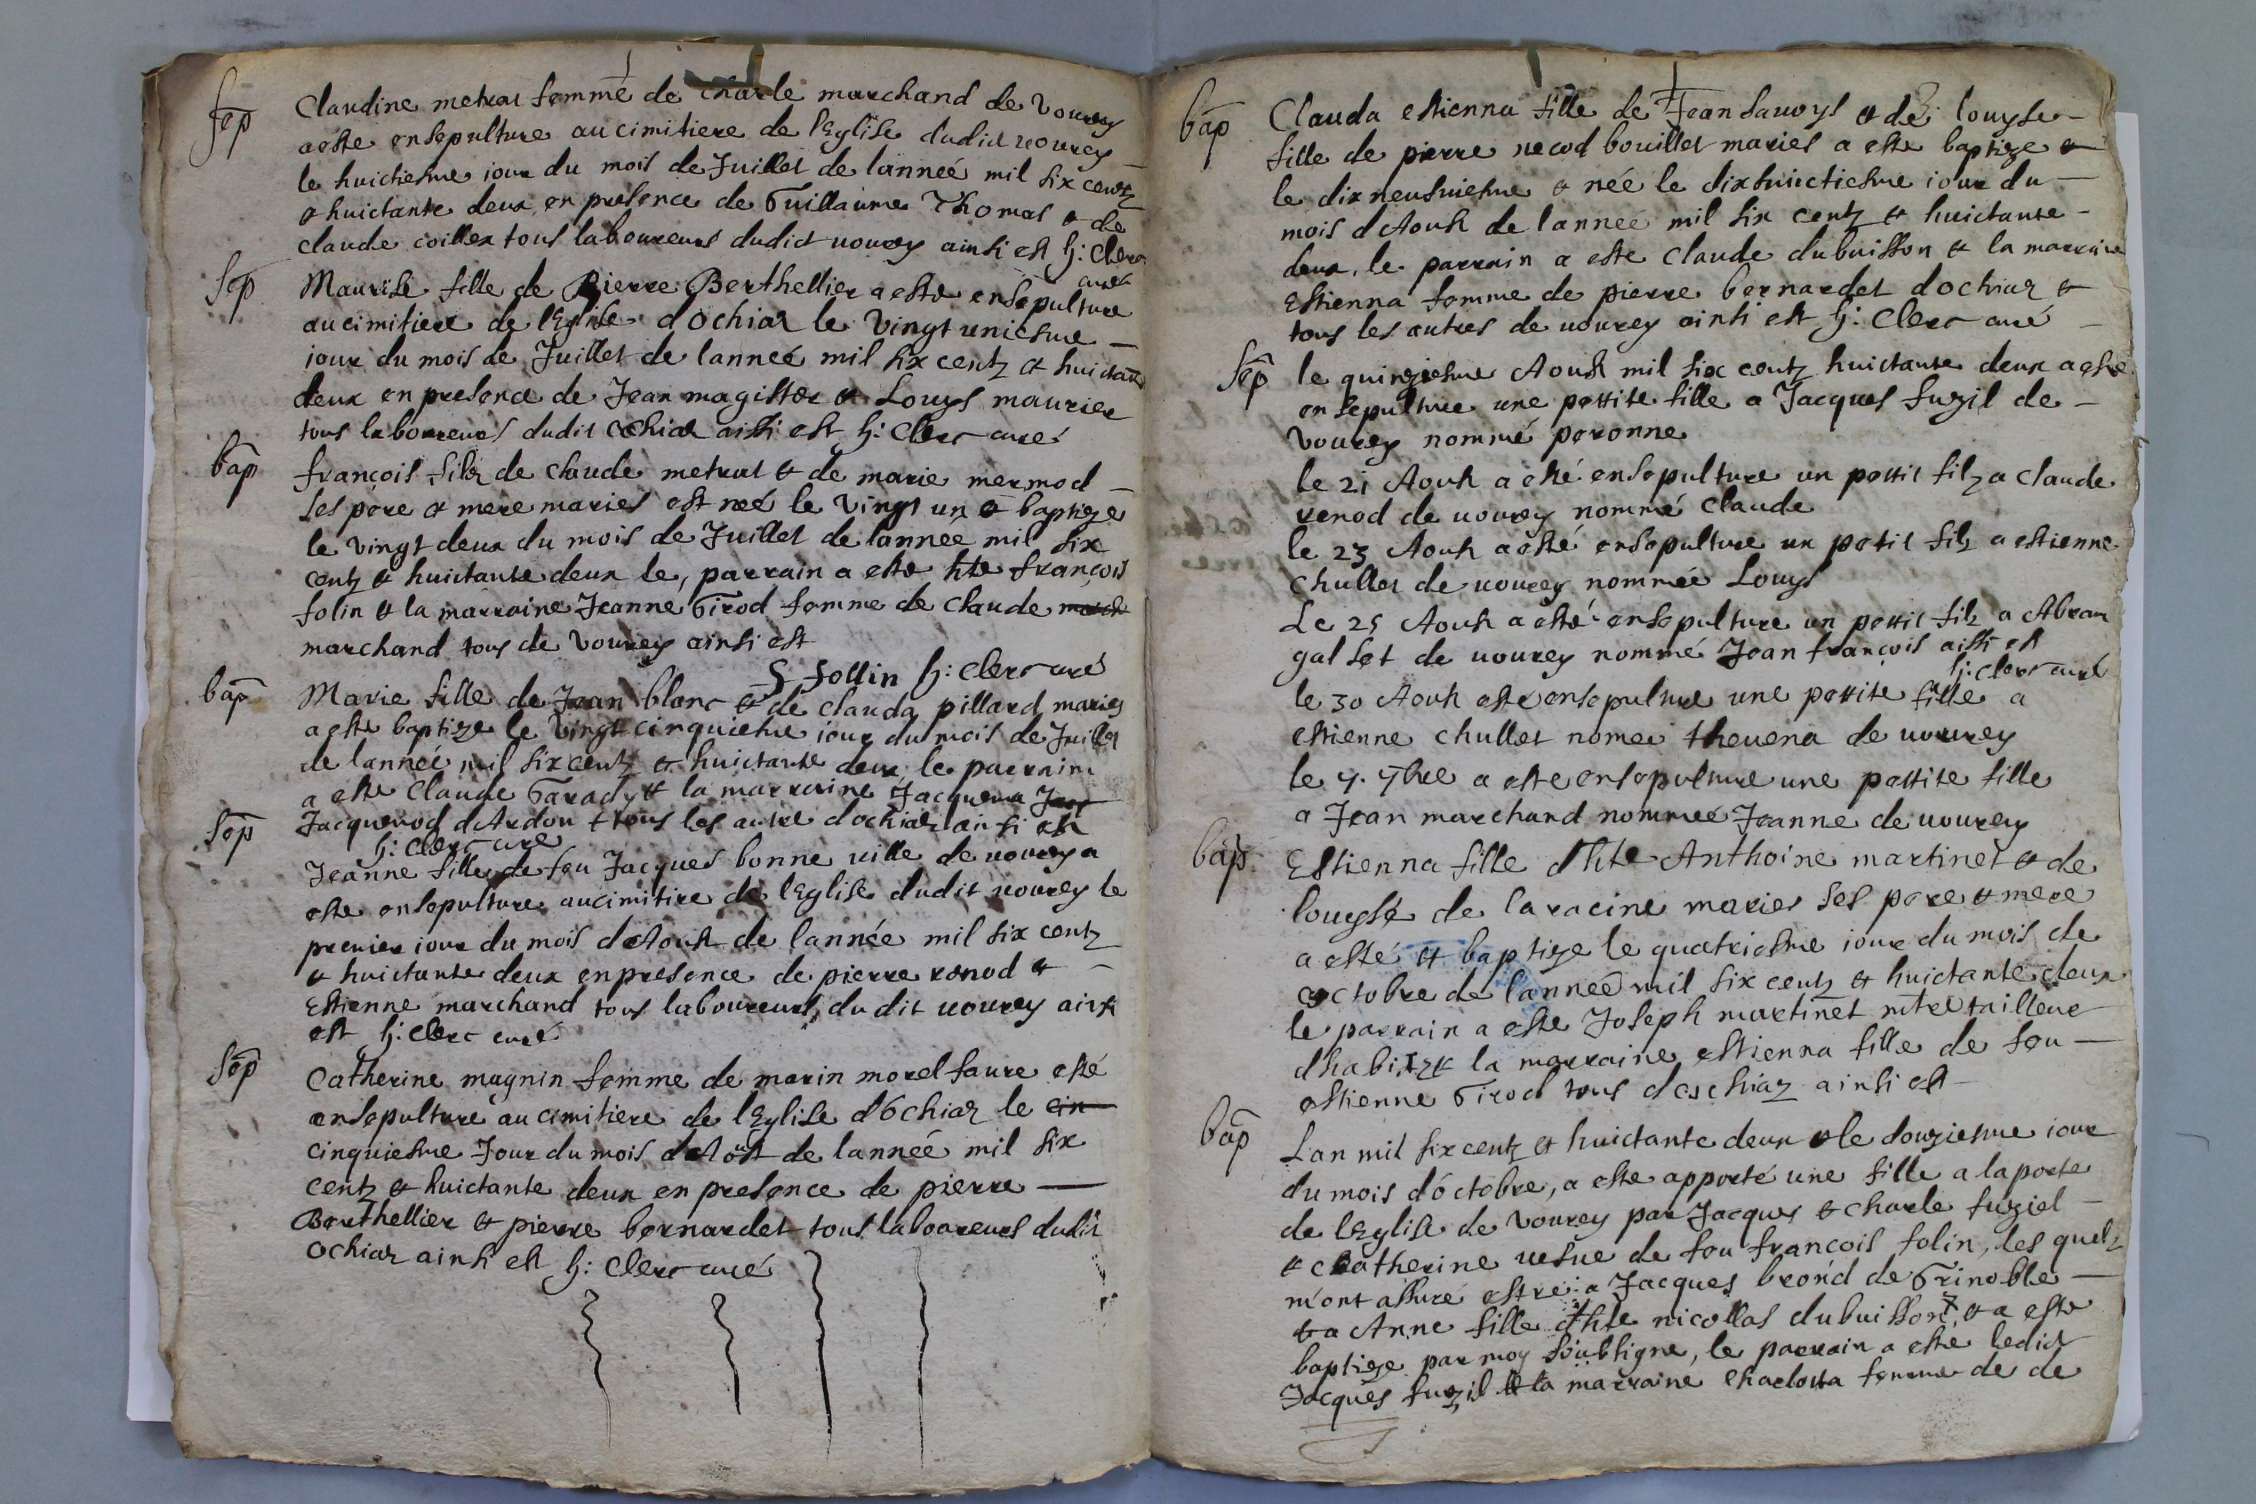 sep
Claudine metral femme de charle marchand de vourey
a este ensepulture au cimitiere de l'Eglise dudict vourey
le huictiesme iour du mois de Juillet de lanneé mil six centz
& huictante deux en presence de Guillaume Thomas & de
claude coillex tous laboureurs dudict vourey ainsi est h: Clerc
curé
sep
Maurise fille de Pierre Berthellier a este ensepulture
au cimitiere de l'Eglise d'Ochiaz le vingt uniesme
iour du mois de Juillet de lanneé mil six centz & huictante
deux en presence de Jean magister & Louys maurier
tous laboureurs dudit ochiaz aisi est h: Clerc curé
bap
françois filz de claude metral & de marie mermod
ses pere & mere mariés est neé le vingt un & baptize
le vingt deux du mois de Juillet de lanneé mil six
centz & huictante deux le, parrain a este hte françois
folin & la marraine Jeanne Girod femme de claude march
marchand tous de vourey ainsi est
F follin h: Clerc curé
bap
Marie fille de Jean blanc & de clauda pillard mariés
a este baptize le vingt cinquiesme iour du mois de Juillet
de lanneé mil six centz & huictante deux le parrain
a este Claude Garady & la marraine Jacquema Jacq
Jacquenod d'Ardon & tous les autre dochiaz ainsi est
h: Clerc curé
sep
Jeanne fille de feu Jacques bonne ville de vourey a
este ensepulture au cimitire de l'Eglise dudit vourey le
premier iour du mois d'Aoust de lannée mil six centz
& huictante deux en presence de pierre renod &
Estienne marchand tous laboureurs du dit vourey ainsi
est h: Clerc curé
sep
Catherine magnin femme de marin morel faure esté
ensepulture au cimitiere de l'Eglise d'Ochiaz le cin
cinquiesme Jour du mois d'Aost de lanneé mil six
centz & huictante deux en presence de pierre
Berthellier & pierre bernardet tous laboureurs dudit
Ochiaz ainsi est h: Clerc curé
bap
Clauda estienna fille de Jean Savoys & de louyse
fille de pierre necod bouillet mariés a este baptize &
le dix neufviesme & née le dixhuictiesme iour du
mois d'Aoust de lanneé mil six centz & huictante
deux, le parrain a este Claude dubuisson & la marraine
Estienna femme de pierre bernardet dochiaz &
tous les autres de vourey ainsi est h: Clerc curé
sep
le quinziesme Aoust mil six centz huictante deux a este
ensepulture une pettite fille a Jacques fuzil de
vourey nommé peronne
le 21 Aoust a esté ensepulture un pettit filz a Claude
renod de vourey nommé Claude
le 23 Aoust a esté ensepulture un petit filz a estienne
chullet de vourey nommée Louys
Le 25 Aoust a esté ensepulture un pettit filz a Abram
galset de vourey nommé Jean françois aissi est
h: clerc curé
le 30 Aoust esté ensepulture une pettite fille a
estienne chullet nomeé thevena de vourey
le 4. 7bre a este ensepulture une pettite fille
a Jean marchand nommeé Jeanne de vourey
bap
Estienna fille d'hte Anthoine martinet & de
louysé de la racine mariés ses pere & mere
a esté & baptize le quatriesme iour du mois de
octobre de lanneé mil six centz & huictante deux
le parrain a este Joseph martinet mtre tailleur
dhabitz & la marraine estienna fille de feu
estienne Girod tous deschiaz ainsi est
bap
Lan mil six centz & huictante deux & le douziesme iour
du mois d'óctobre, a este apporté une fille a la porte
de l'Eglise de vourey par Jacques & charle fuziel
& catherine vesve de feu françois folin, les quelz
m'ont assuré estre a Jacques brond de Grinoble
& a Anne fille d'hte nicollas dubuisson, & a este
baptize par moy soubsigne, le parrain a este ledict
Jacques fuzil & la marraine charlotta femme de de